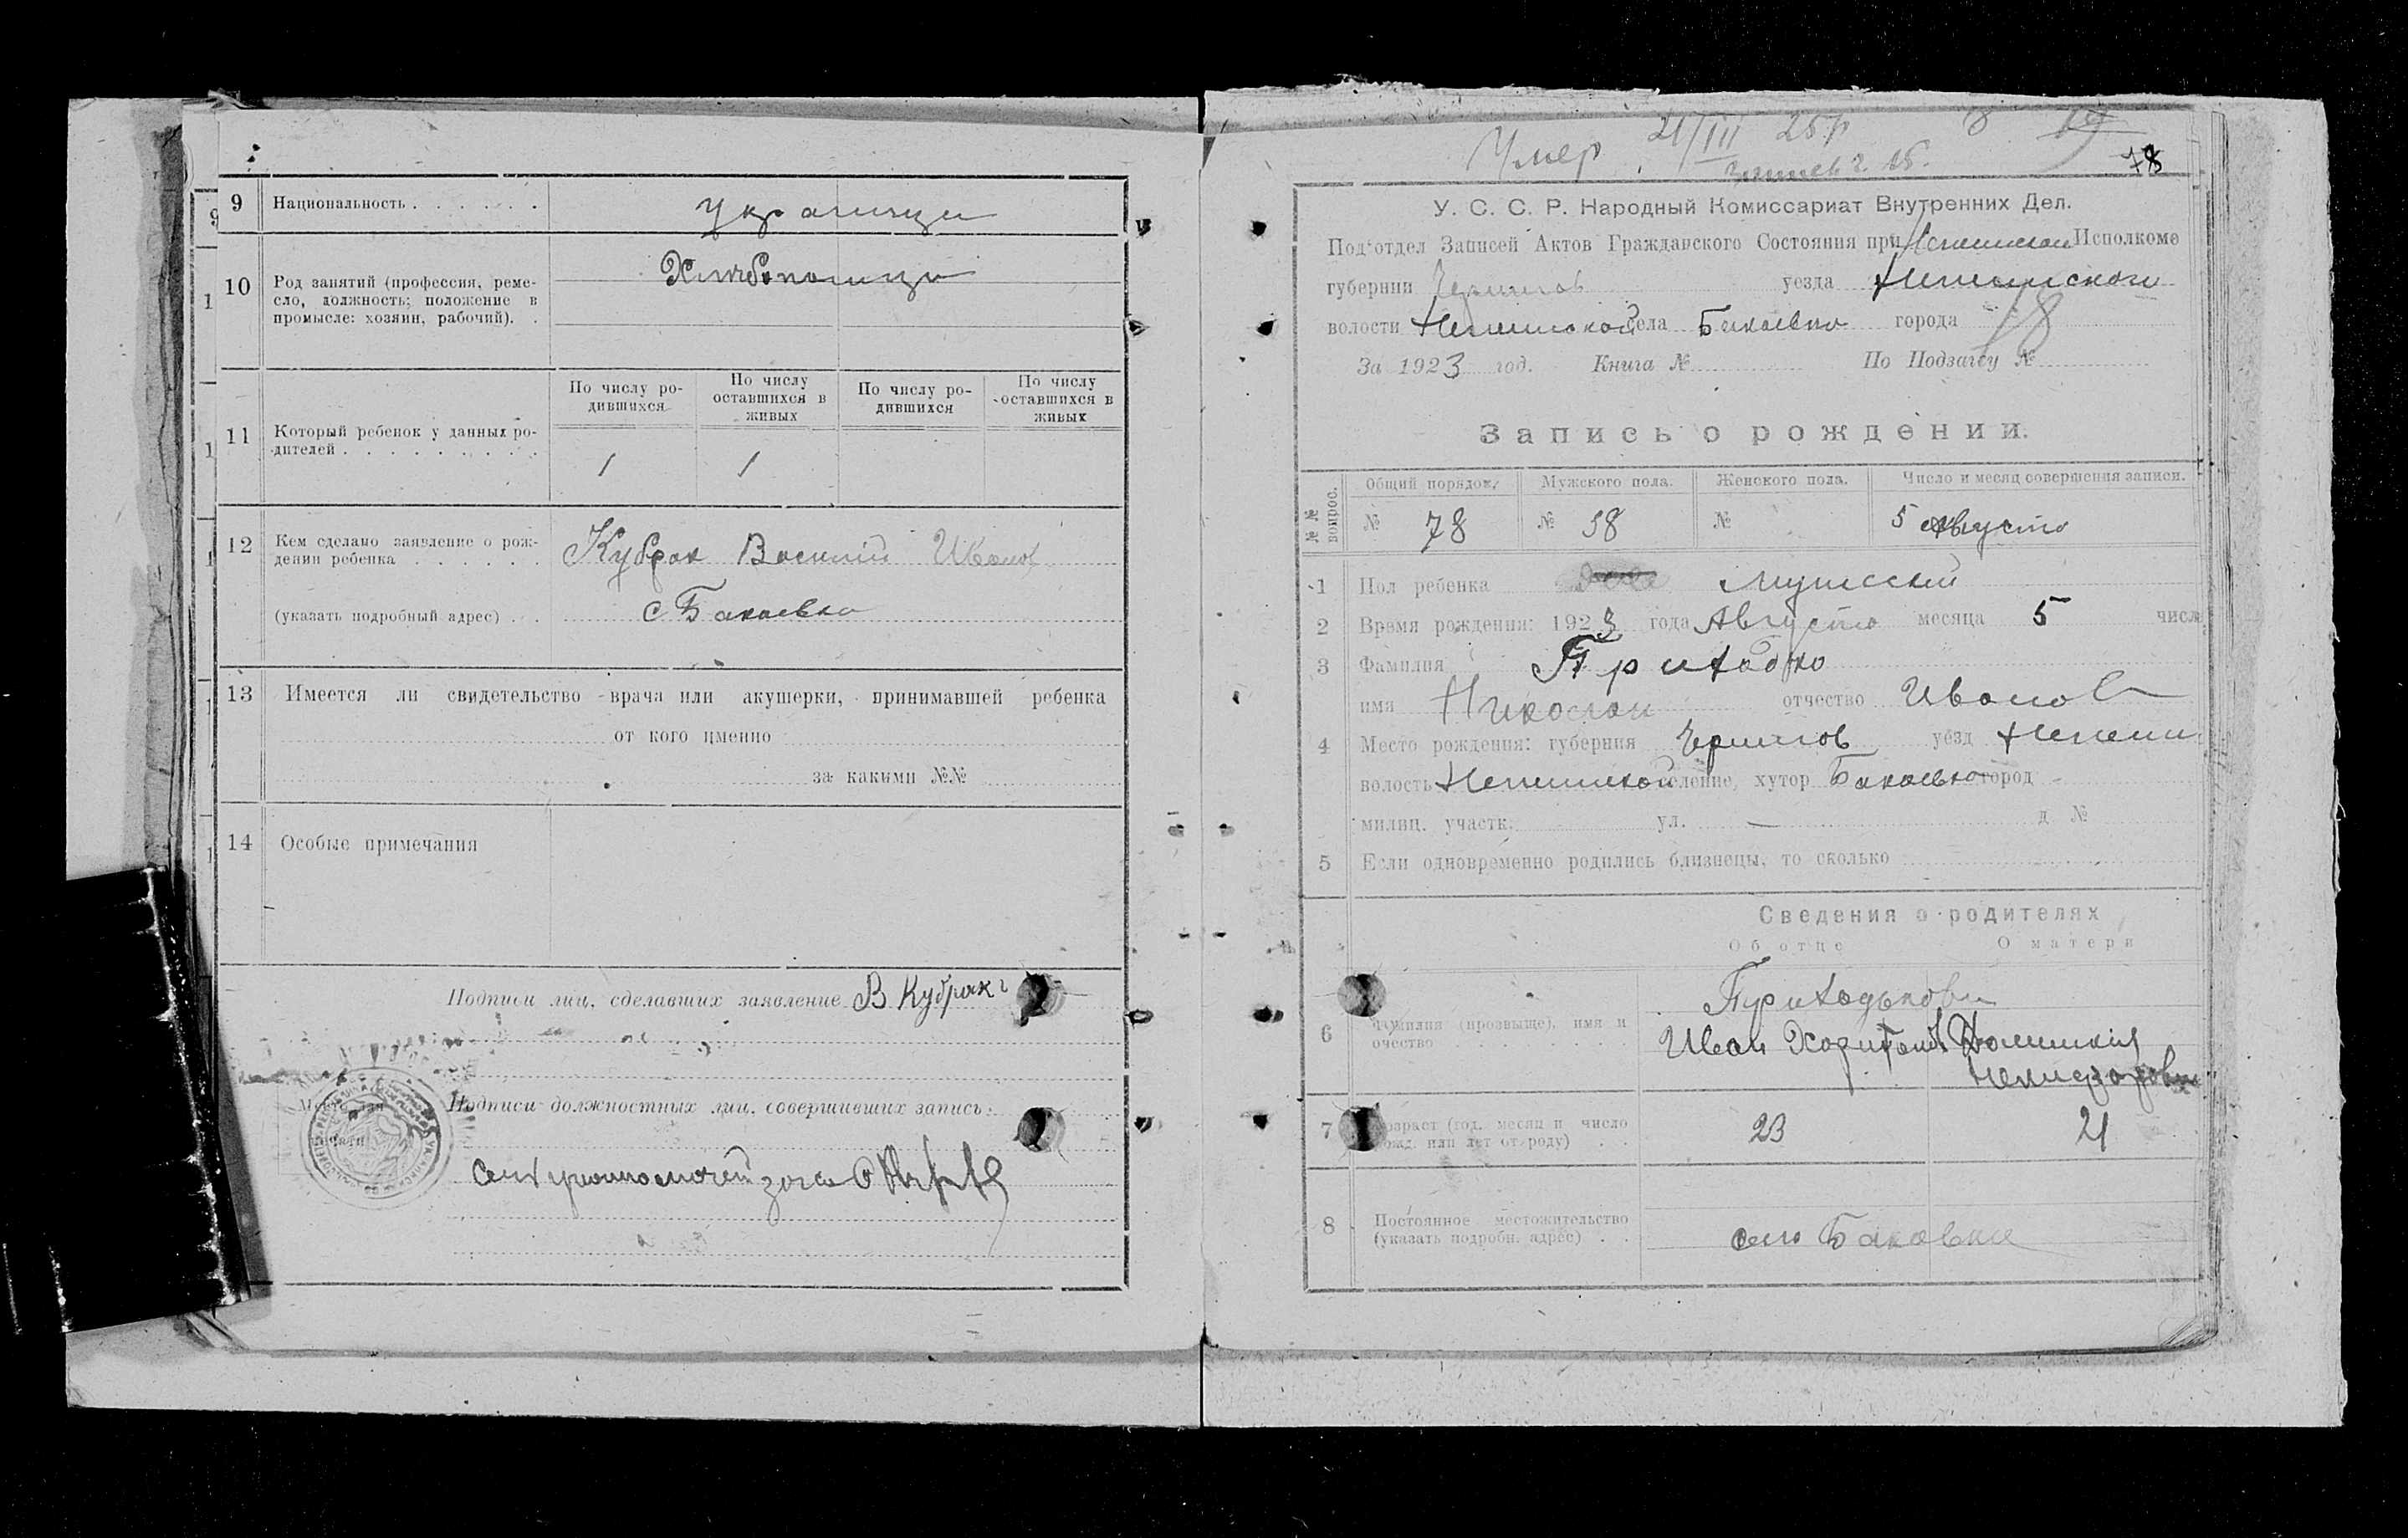 9 Национальность . . . . . . украинци
10 Род занятий (профессия, реме-
сло, должность; положение в
промысле: хозяин, рабочий). .
Хлибопашци
По числу ро-
дившихся
По числу
оставшихся в
живых
По числу ро-
дившихся
По числу
оставшихся в
живых
11 Который ребенок у данных ро-
дителей . . . . . . . . .
1 1
12 Кем сделано заявление о рож-
дении ребенка . . . . . . Кубрак Василий Иванов
(указать подробный адрес) . . с Бакаевка
13 Имеется ли свидетельство врача или акушерки, принимавшей ребенка
от кого именно
за какими №№
14 Особые примечания
Подписи лиц, сделавших заявление В Кубрак
Место для
печати
Подписи должностных лиц, совершивших запись:
Умер 21/III 25 р 8
78
У. С. С. Р. Народный Комиссариат Внутренних Дел.
Подотдел Записей Актов Гражданского Состояния при Исполкоме
губернии Чернигов уезда Нежинского
волости Нежинской села Бакаевка города
18
За 1923 год. Книга № По Подзагсу №
Запись о рождении.
№ №
вопрос.
Общий порядок. Мужского пола. Женского пола. Число и месяц совершения записи.
№ 78 № 38 № 5 Августа
1 Пол ребенка Мужский
2 Время рождения: 1923 года Августа месяца 5 числа
3 Фамилия Приходко
имя Николай отчество Иванов
4 Место рождения: губерния Чернигов уезд Нежин
волость Нежинской селение, хутор Бакаевка город
милиц. участк. ул. — д №
5 Если одновременно родились близнецы, то сколько
Сведения о родителях
Об отце О матери
6 Фамилия (прозвыще), имя и
очество . . . . . . . .
Приходькови
Иван Харитонов
7 Возраст (год, месяц и число
рожд. или лет от роду) . .
23 21
8 Постоянное местожительство
(указать подробн. адрес) . .
село Бакаевка